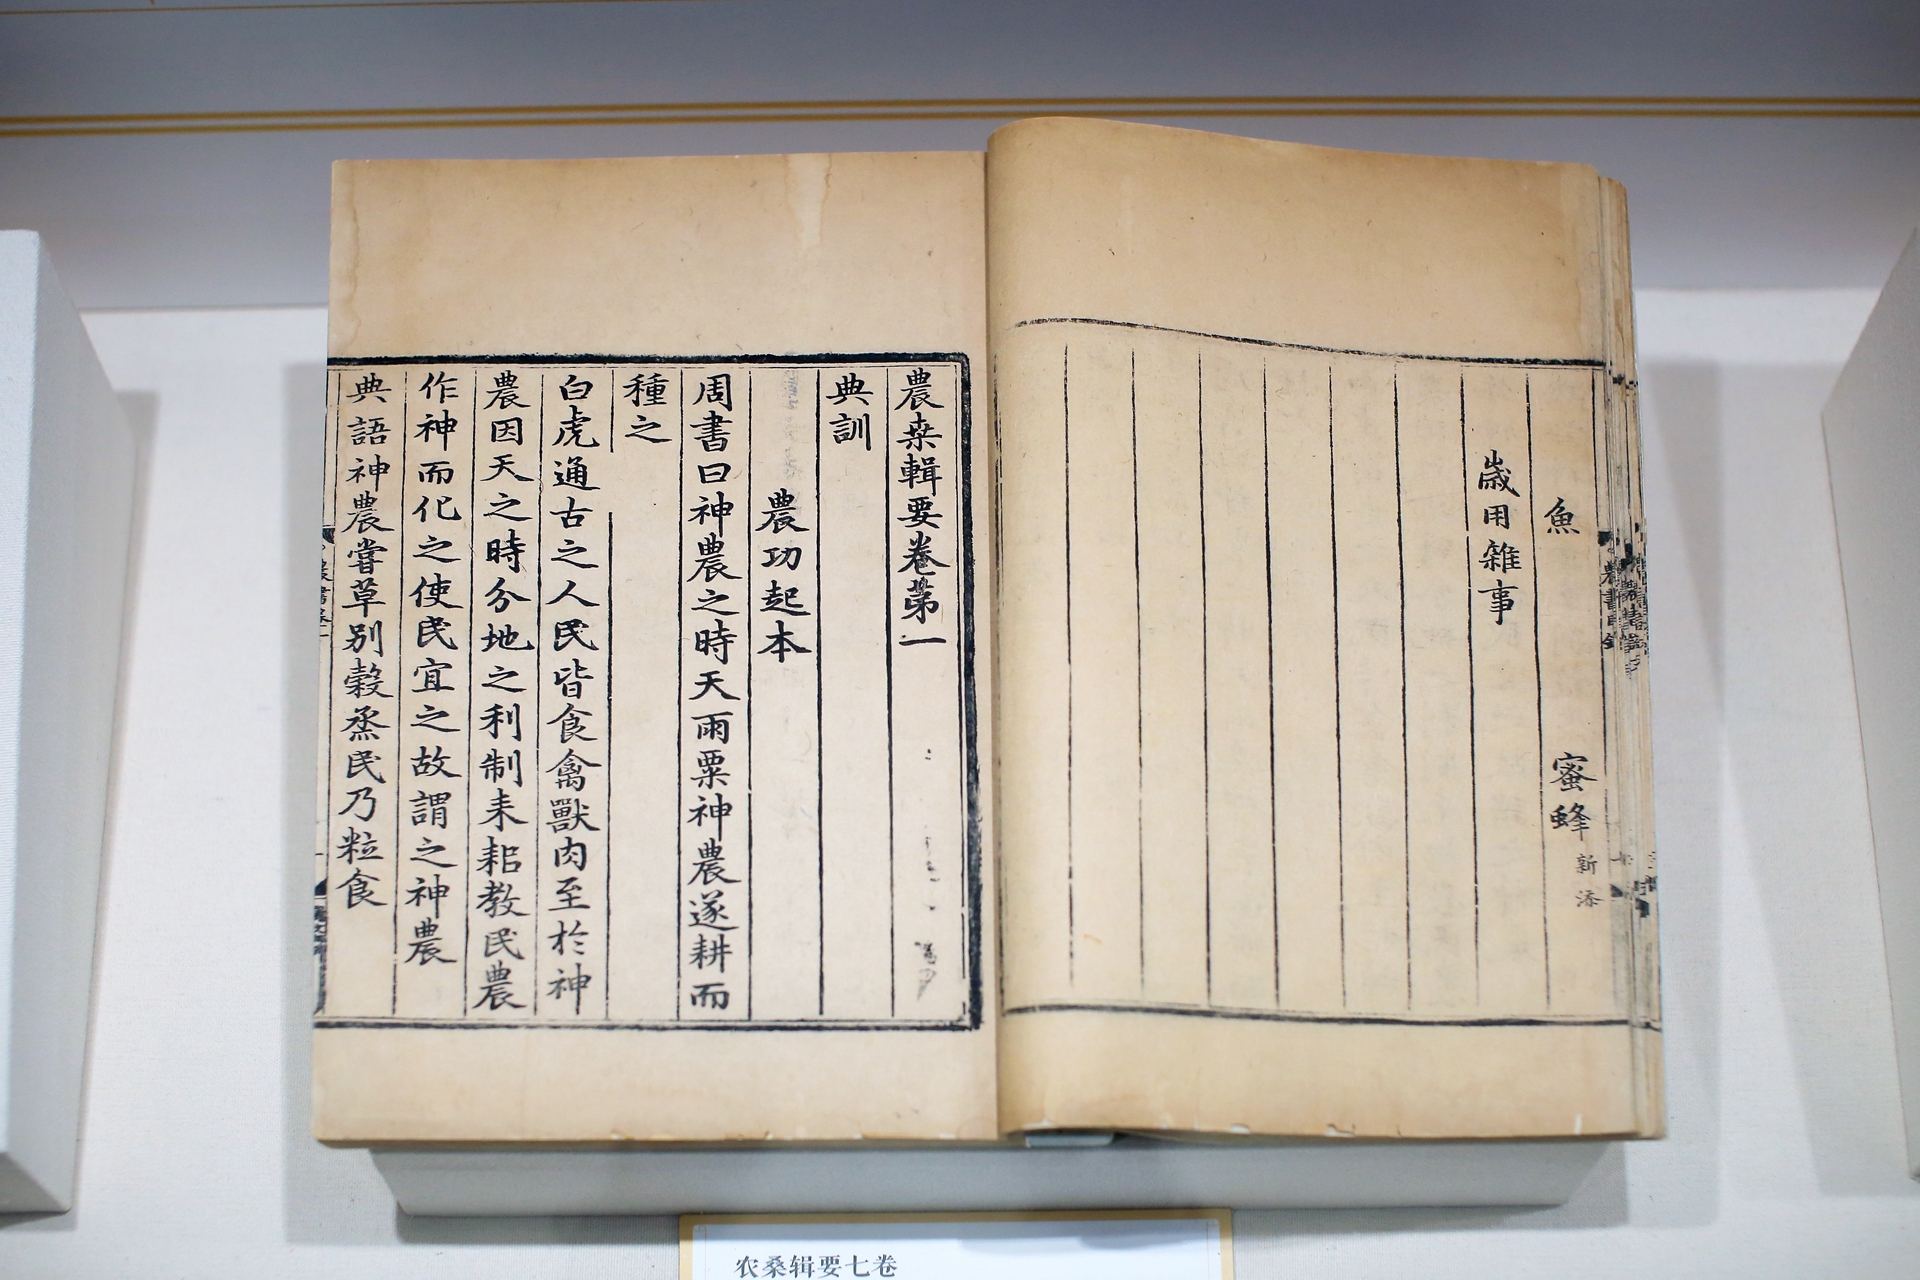 魚 蜜蜂 新添
歳用雜事
農桒輯要卷第一
典訓
農功起本
周書曰神農之時天雨粟神農遂耕而
種之
白虎通古之人民皆食禽獸肉至於神
農因天之時分地之利制耒耜教民農
作神而化之使民宜之故謂之神農
典語神農嘗草别榖烝民乃粒食
农桑辑要七卷